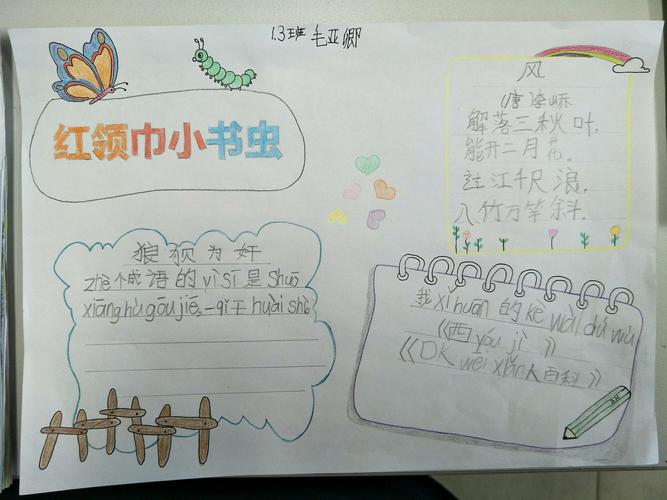 1.3班 毛亚卿
红领巾小书虫
风
唐 李峤
解落三秋叶.
能开二月花。
过江千尺浪.
入竹万竿斜.
狼狈为奸
zhè个成语的yì sī是shuō
xiāng hù gōu jié,一qǐ干huài shì
我xǐ huān的kè wài dú wù
《西yóu jì》
《DK wēi xiǎn大百科》